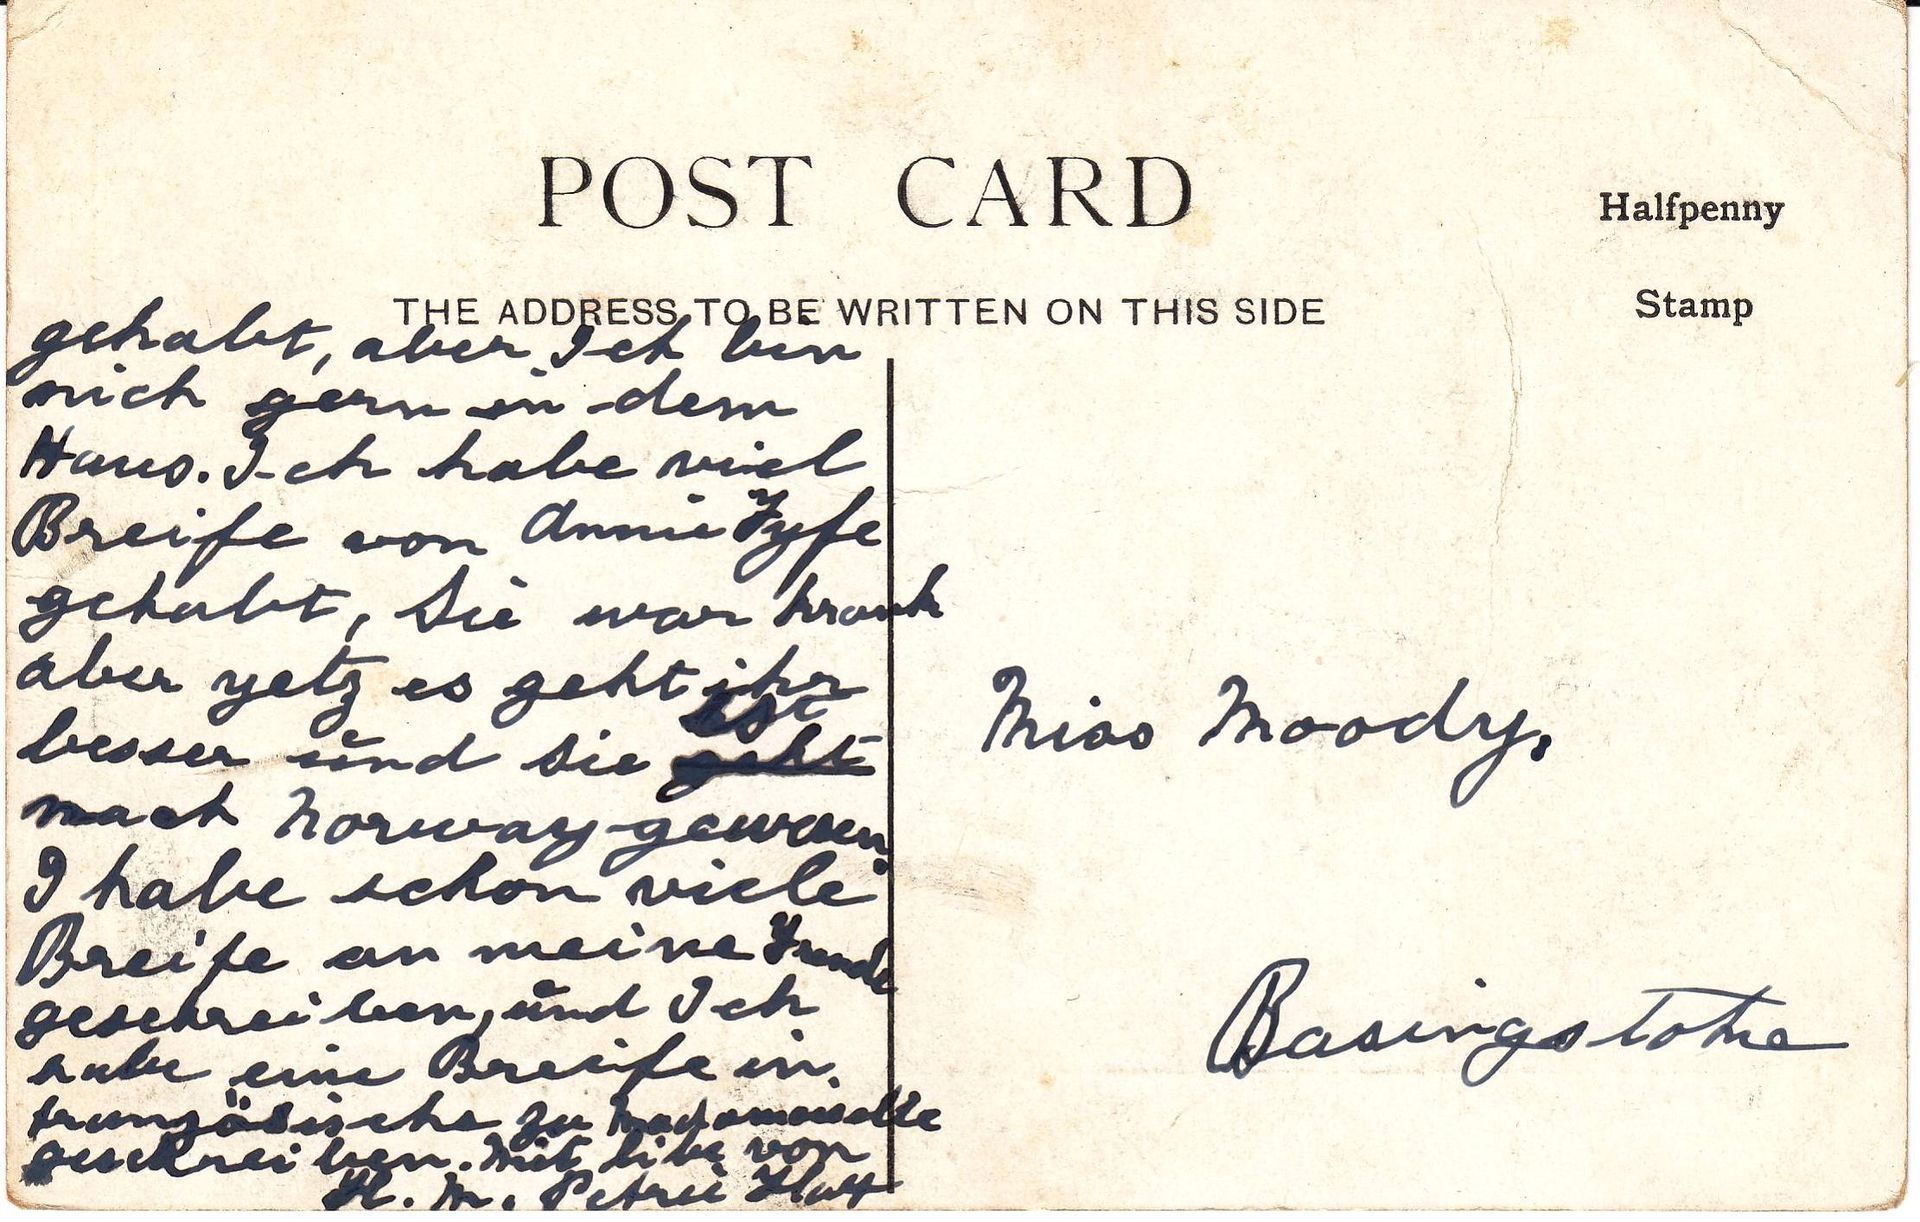 POST CARD
Halfpenny
Stamp
THE ADDRESS TO BE WRITTEN ON THIS SIDE
gehabt, aber Ich bin
nich gern in dem
Haus. Ich habe viel
Breife von Annie Fyfe
gehabt, Sie war krank
aber yetz es geht ihr
besser ŭnd sie ist
nach Norway gewesen.
I habe schon viele
Breife an meine
geschreiben, ŭnd Ich
habe eine Breife in
französische zu Madamoiselle
geschreiben. Mit libe von
H. M. Petrie Hay
Miss Moody,
Basingstoke